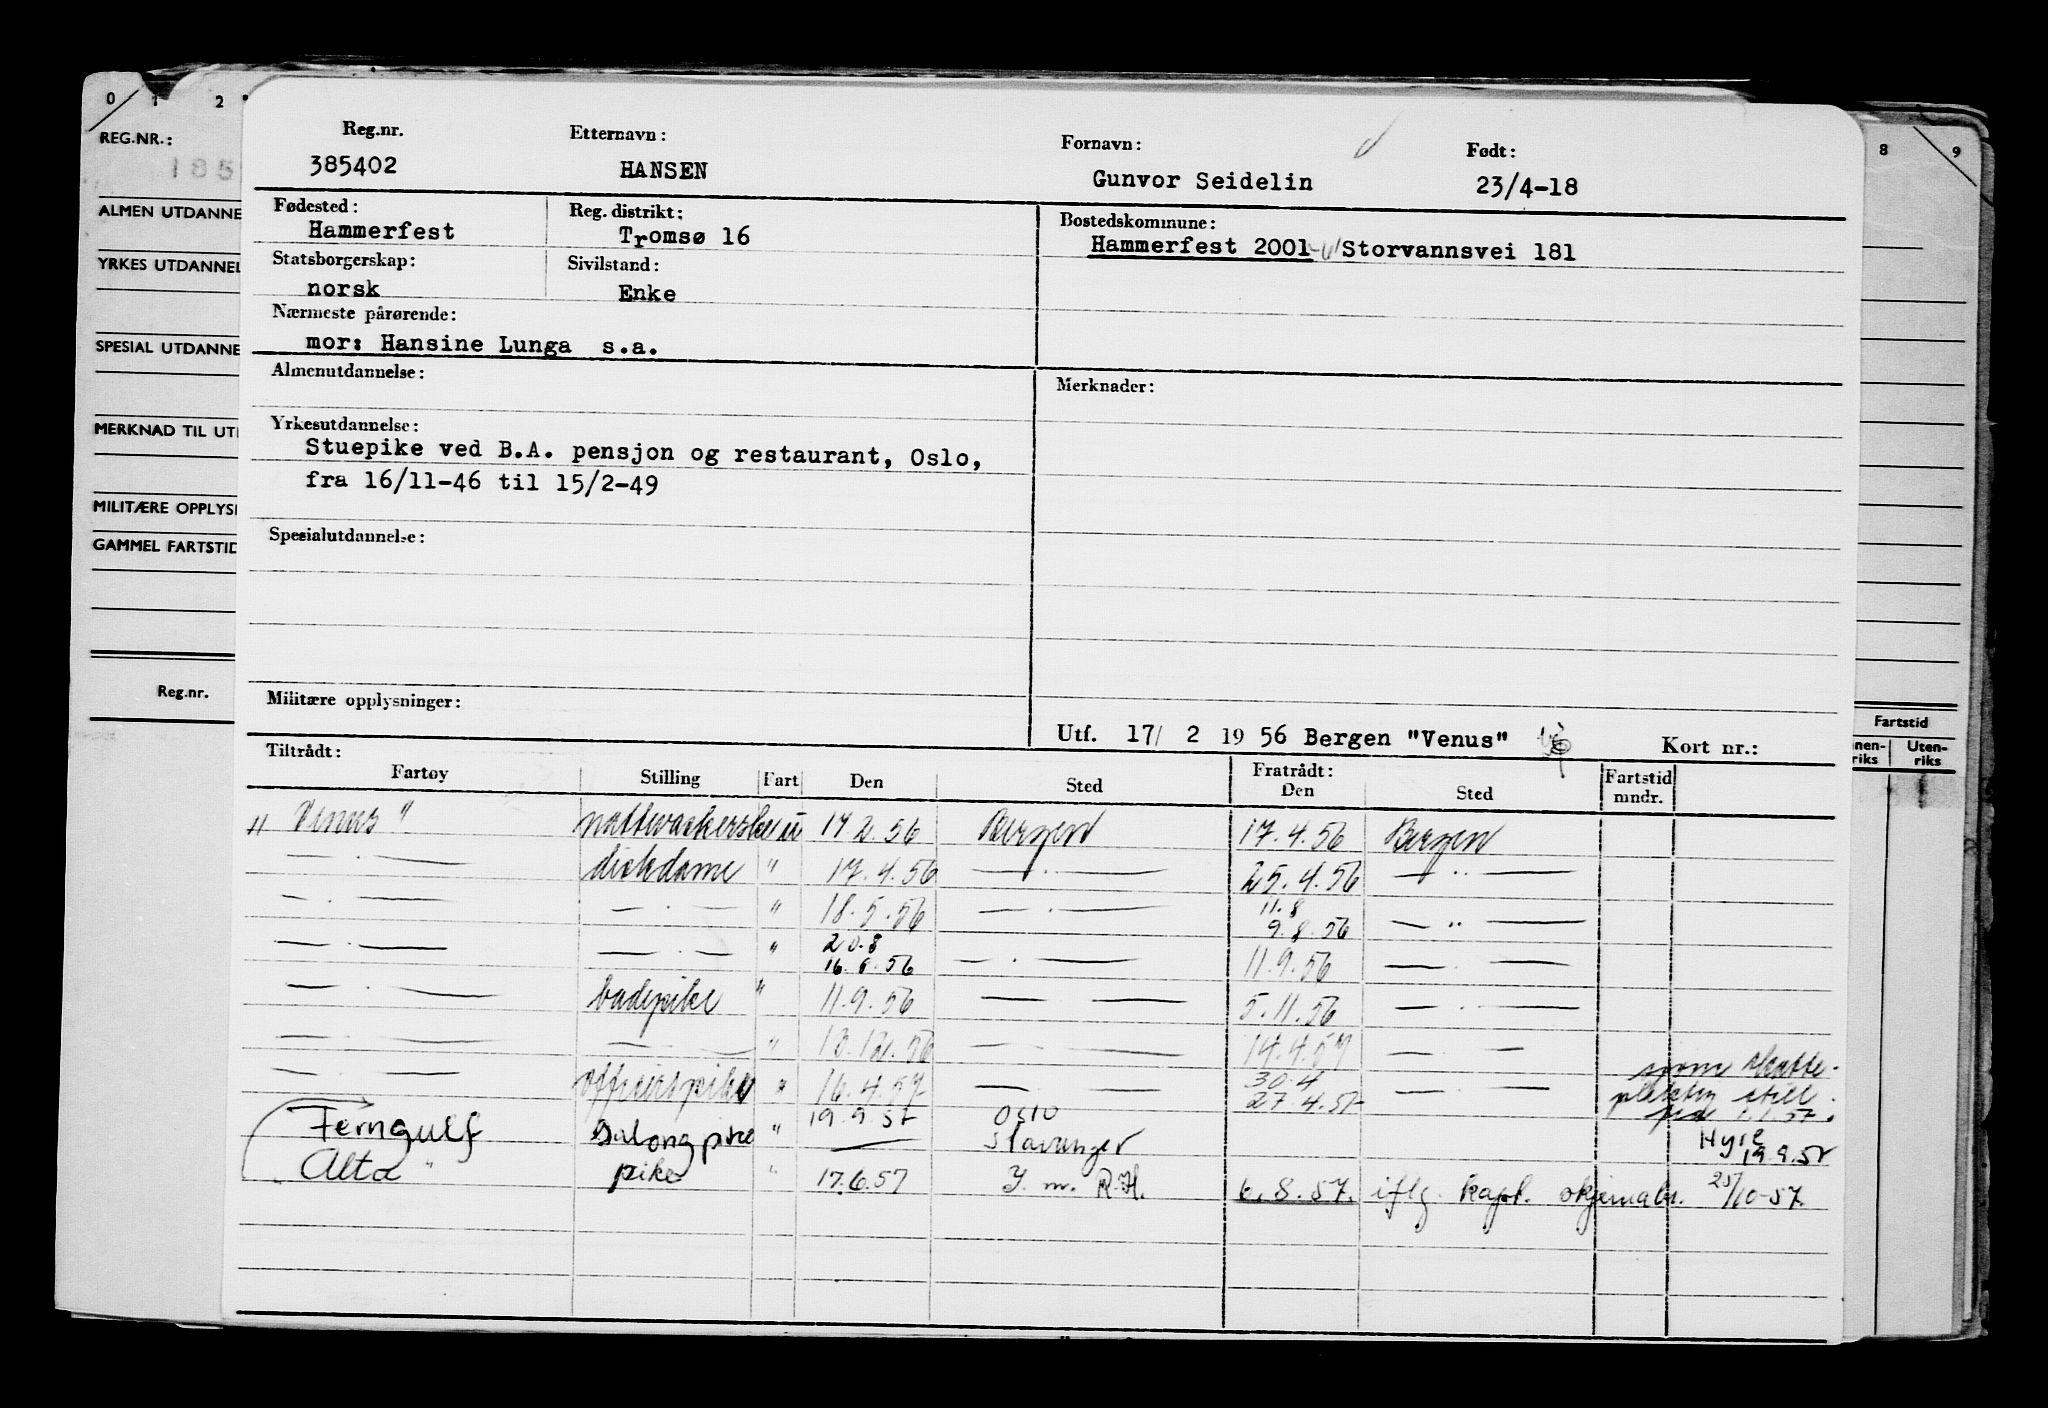 0 1 2
8 9
REG.NR.:
185
ALMEN UTDANNE
YRKES UTDANNEL
SPESIAL UTDANNE
MERKNAD TIL UT
MILITÆRE OPPLYSI
GAMMEL FARTSTID
Reg.nr.
Fartstid
nen-riks Uten-riks
Reg.nr. Etternavn: Fornavn: Født:
385402 HANSEN Gunvor Seidelin 23/4-18
Fødested: Reg. distrikt: Bostedskommune:
Hammerfest Tromsø 16 Hammerfest 2001 Storvannsvei 181
Statsborgerskap: Sivilstand:
norsk Enke
Nærmeste pårørende:
mor: Hansine Lunga s.a.
Almenutdannelse: Merknader:
Yrkesutdannelse:
Stuepike ved B.A. pensjon og restaurant, Oslo,
fra 16/11-46 til 15/2-49
Spesialutdannelse:
Militære opplysninger:
Utf. 17/ 2 19 56 Bergen "Venus" Kort nr.:
Tiltrådt: Fratrådt:
Fartøy Stilling Fart Den Sted Den Sted Fartstid mndr.
"Venus" u 17 2. 56 Bergen 17.4.56 Bergen
— " — dekkdame " 17.4.56 — " — 25.4.56 — " —
— " — — " — " 18.5.56 — " — 11.8
9.8.56 — " —
— " — — " — " 20.8
16.8.56 — " — 11.9.56 — " —
— " — badepike " 11.9.56 — " — 5.11.56 — " —
— " — — " — " 13.12.56 — " — 14.4.57 — " —
— " — offiserspike " 16.4.57 — " — 30.4
27.4.57 — " — skatte-
still
1.1.57.
Ferngulf Salongpike " 19.9.57 Oslo
Stavanger Hyre
19.9.57
Alta " pike " 17.6.57 R.H. 6.8.57. iflg. kapt. skjema 25/10-57.